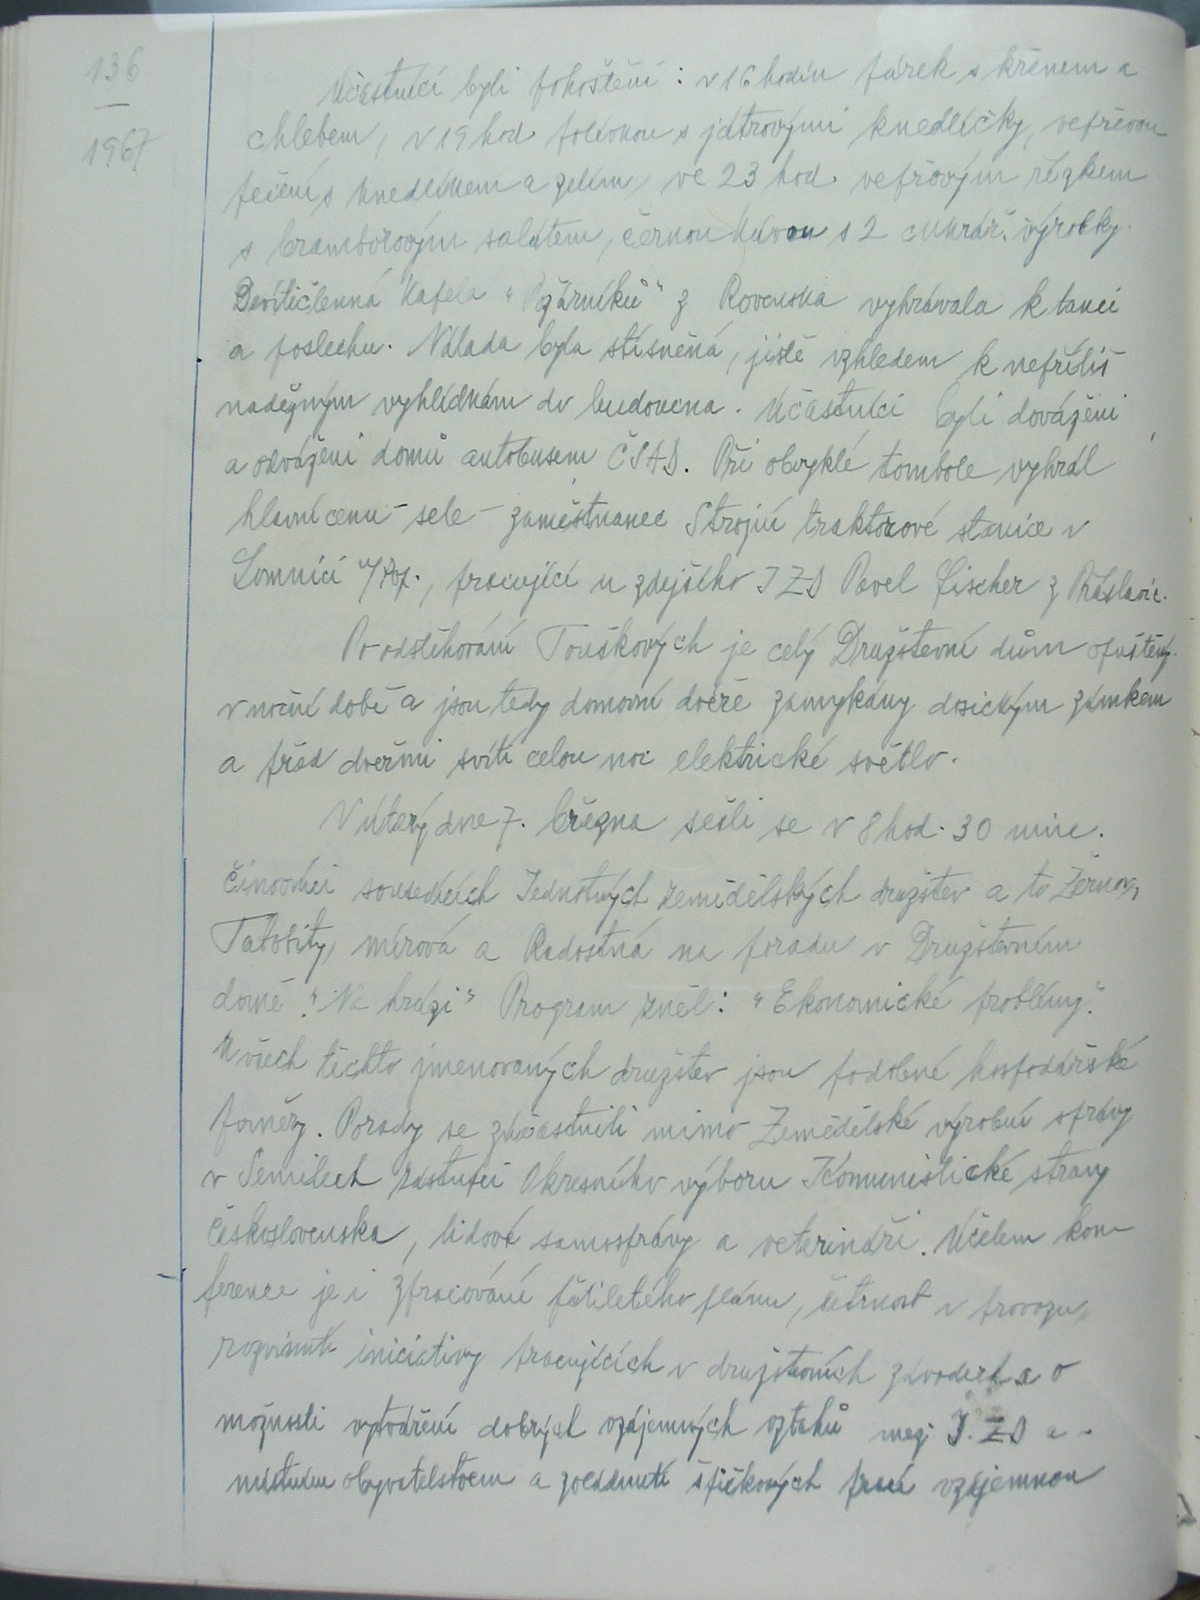 136
1967
Účastníci byli pohoštěni: v 16 hodin párek s křenem a
chlebem, v 19 hod polévkou s játrovými knedlíčky, vepřovou
pečení s knedlíkem a zelím, ve 23 hod. vepřovým řízkem
s bramborovým salátem, černou kávou s 2 cukrář. výrobky.
Devítičlenná kapela "Požárníků" z Rovenska vyhrávala k tanci
a poslechu. Nálada byla stísněná, jistě vzhledem k nepříliš
nadějným vyhlídkám do budoucna. Účastníci byli dováženi
a odváženi domů autobusem ČSAD. Při obvyklé tombole vyhrál
hlavní cenu – sele – zaměstnanec Strojní traktorové stanice v
Lomnici n/Pop., pracující u zdejšího JZD Pavel Fischer z Ráslavic.
Po odstěhování Touškových je celý Družstevní dům opuštěný
v noční době a jsou tedy domovní dveře zamykány dosickým zámkem
a před dveřmi svítí celou noc elektrické světlo.
V úterý dne 7. března sešli se v 8 hod. 30 min.
činovníci sousedících Jednotných zemědělských družstev a to Žernov,
Tatobity, mírová a Radostná na poradu v Družstevním
domě "Na hrázi" Program zněl: "Ekonomické problémy."
U všech těchto jmenovaných družstev jsou podobné hospodářské
poměry. Porady se zúčastnili mimo Zemědělské výrobní správy
v Semilech zástupci Okresního výboru Komunistické strany
Československa, lidové samosprávy a veterináři. Účelem kon-
ference je i zpracování pětiletého plánu, šetrnost v provozu,
rozvinutí iniciativy pracujících v družstevních závodech a o
možnosti vytváření dobrých vzájemných vztahů mezi J.ZD a
místním obyvatelstvem a zvládnutí špičkových prací vzájemnou